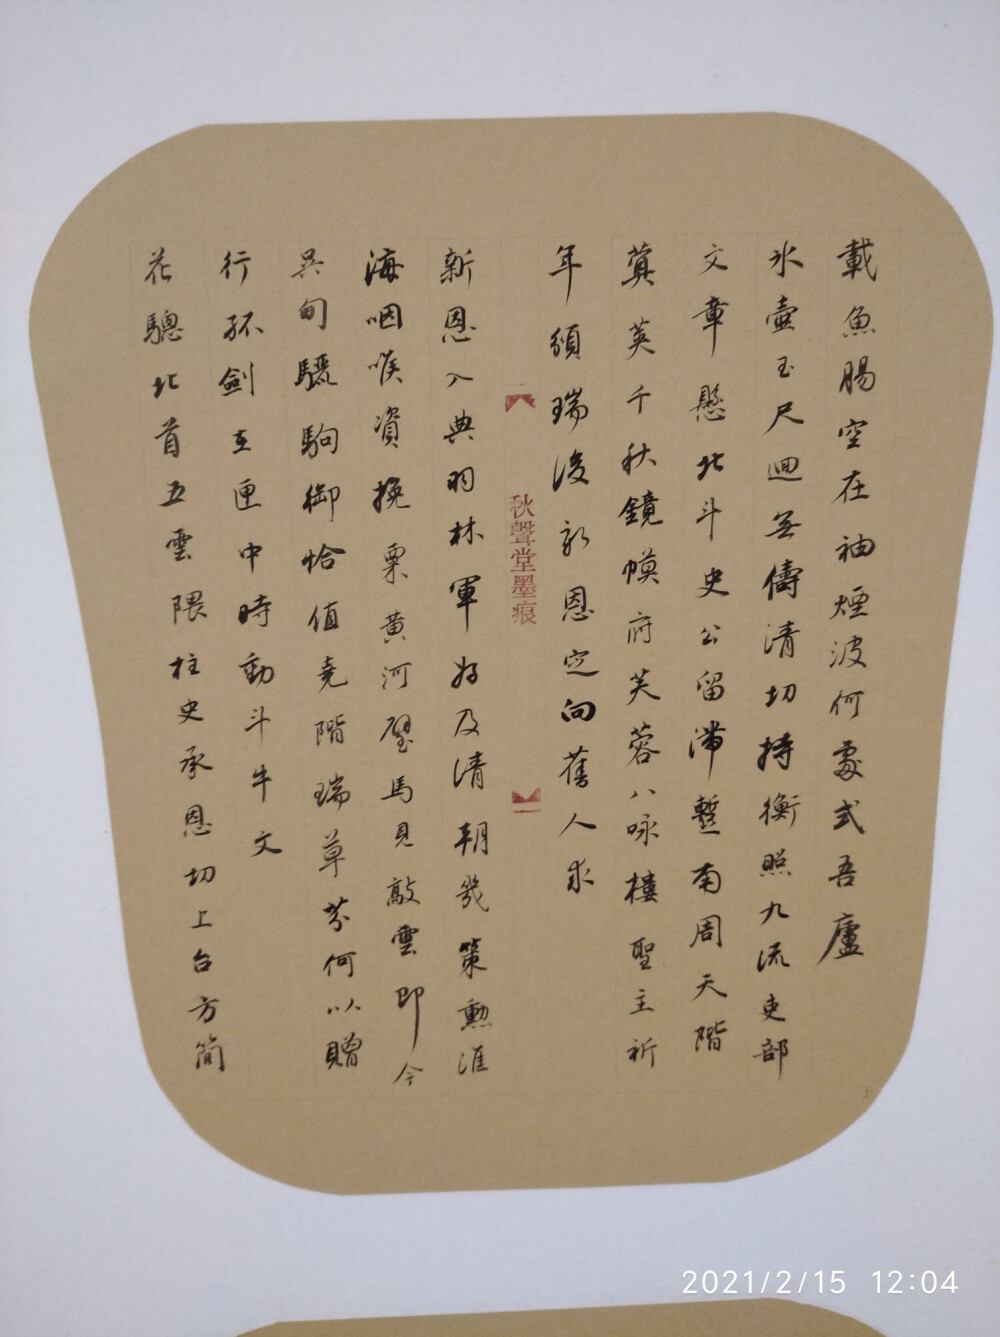 載魚腸空在袖煙波何處式吾廬
冰壺玉尺迥無儔清切持衡照九流吏部
文章懸北斗史公留滯蹔南周天階
蓂莢千秋鏡幙府芙蓉八咏樓聖主祈
年頒瑞後新恩定向舊人求
秋聲堂墨痕
新恩入典羽林軍好及清朝幾策勲淮
海咽喉資挽粟黃河璧馬見敲雲即今
吳甸驪駒御恰值堯階瑞草芬何以贈
行孤劍在匣中時動斗牛文
花驄北首五雲隈柱史承恩切上台方簡
2021/2/15 12:04